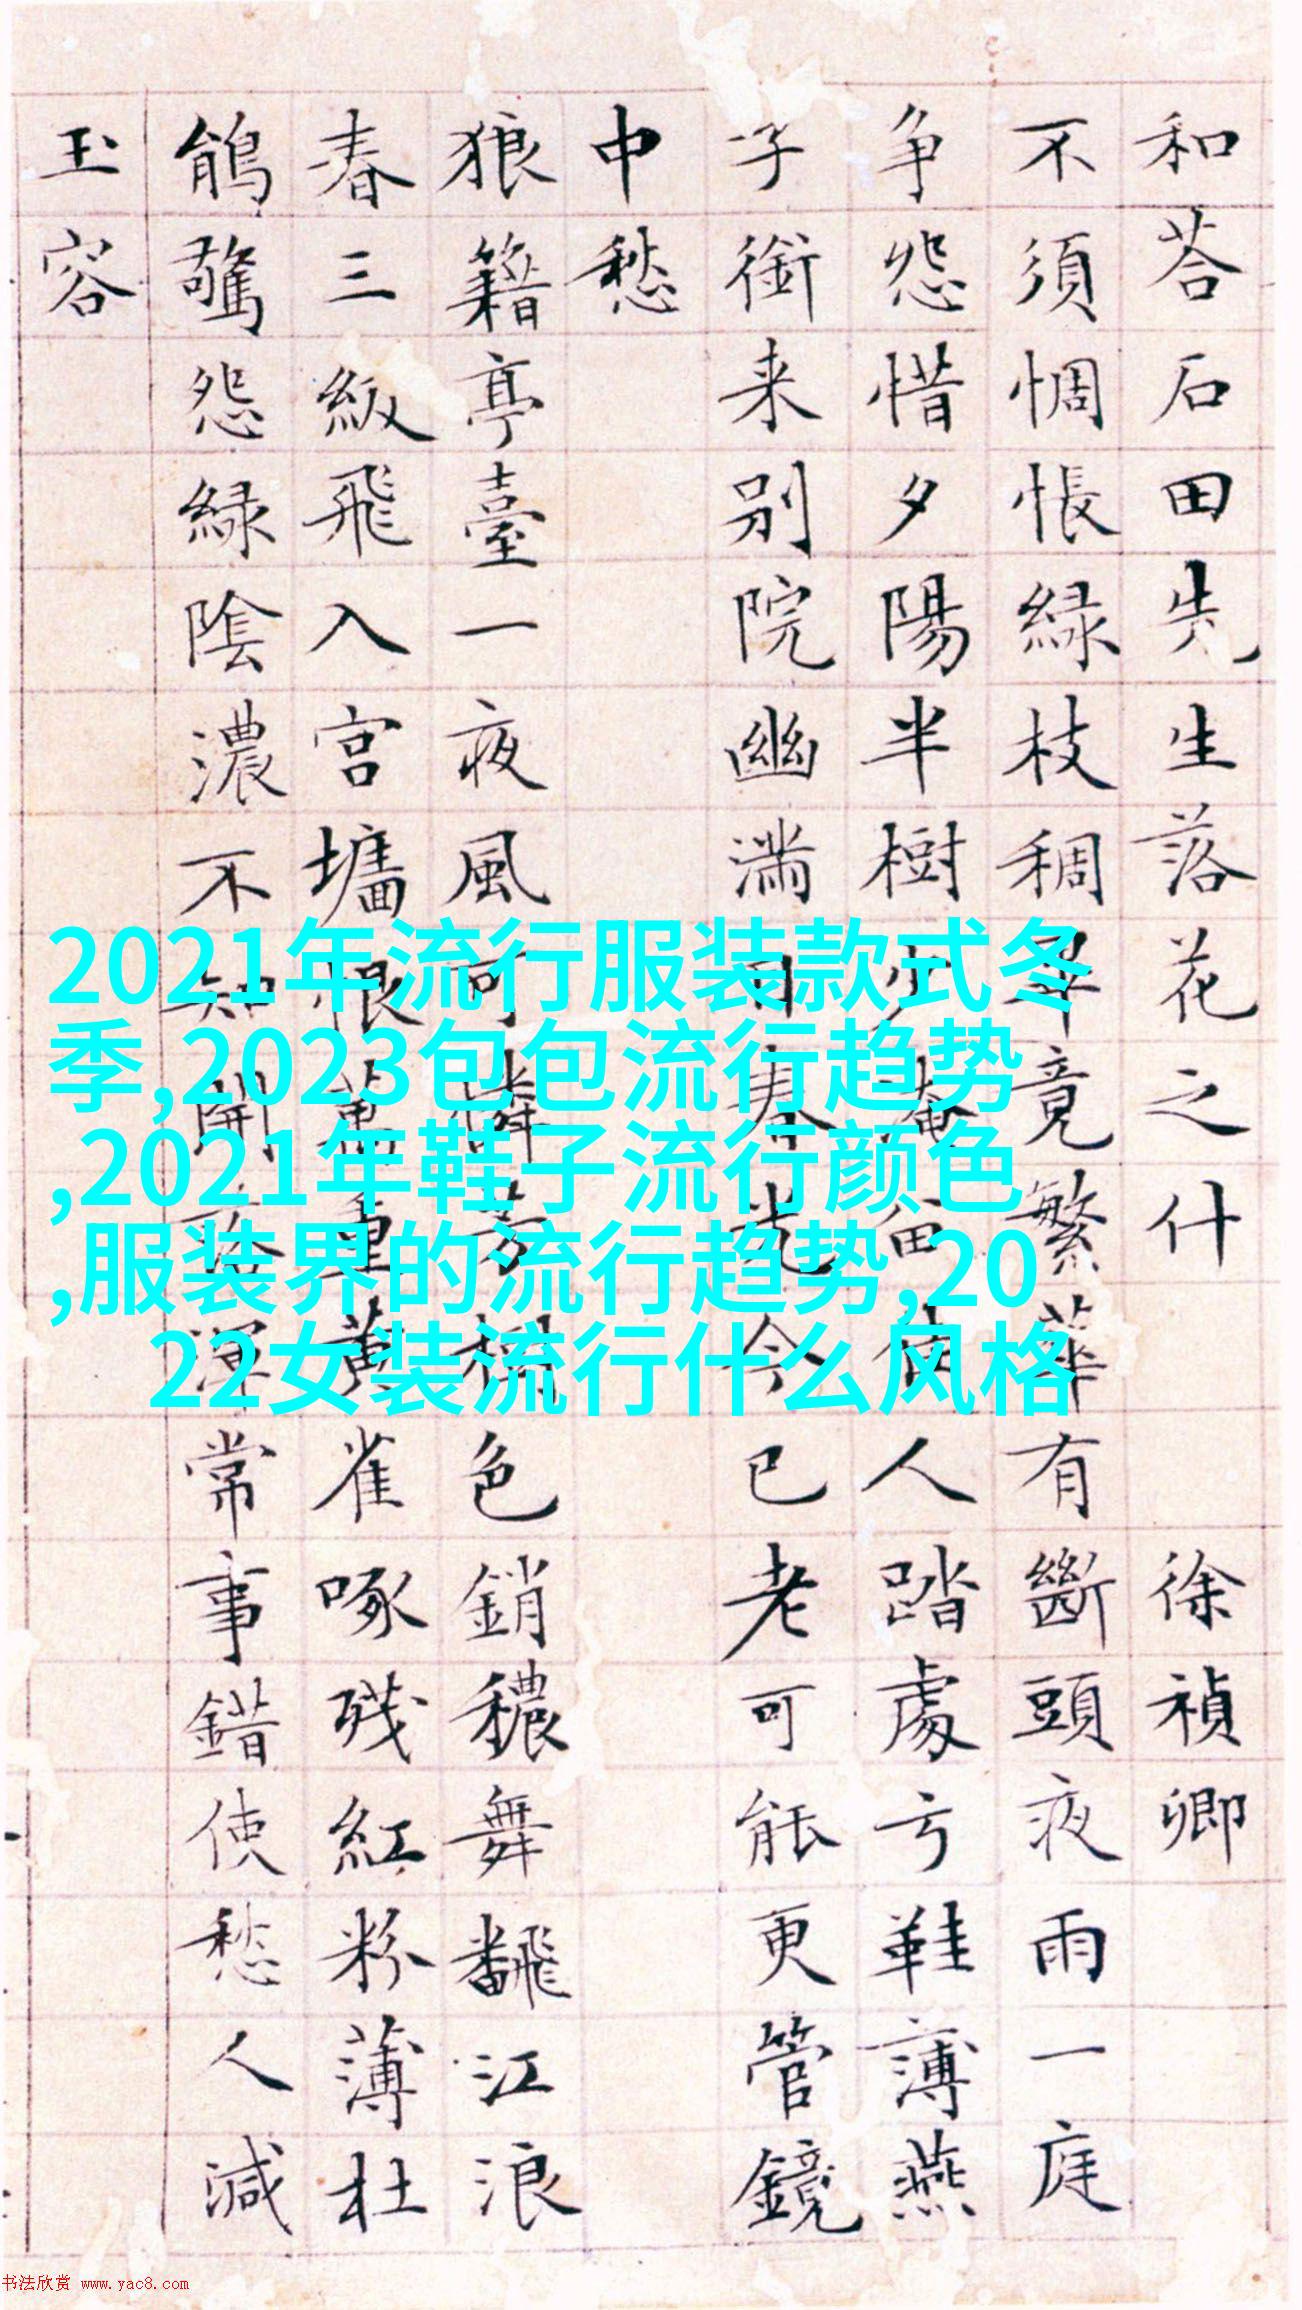 和荅石田先生落花之什 徐禎卿
不須惆悵綠枝稠畢竟繁華有斷頭夜雨一庭
争怨惜夕陽半樹少淹留佳人踏處弓鞋薄燕
子銜来別院幽滿目春光今已老可能更管鏡
中愁
狼籍亭臺一夜風可憐芳樹色銷穠舞飜江浪
春三級飛入宫墻恨萬重黄雀啄殘紅粉薄杜
鵑驚怨綠陰濃不知開落渾常事錯使愁人減
玉容
2021年流行服装款式冬
季,2023包包流行趋势
,2021年鞋子流行颜色
,服装界的流行趋势,20
22女装流行什么风格
书法欣赏 www.yac8.com